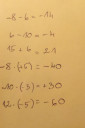 -8-6=-14
6-10=-4
15+6=21
-8·(+5)=-40
-10·(-3)=+30
12·(-5)=-60